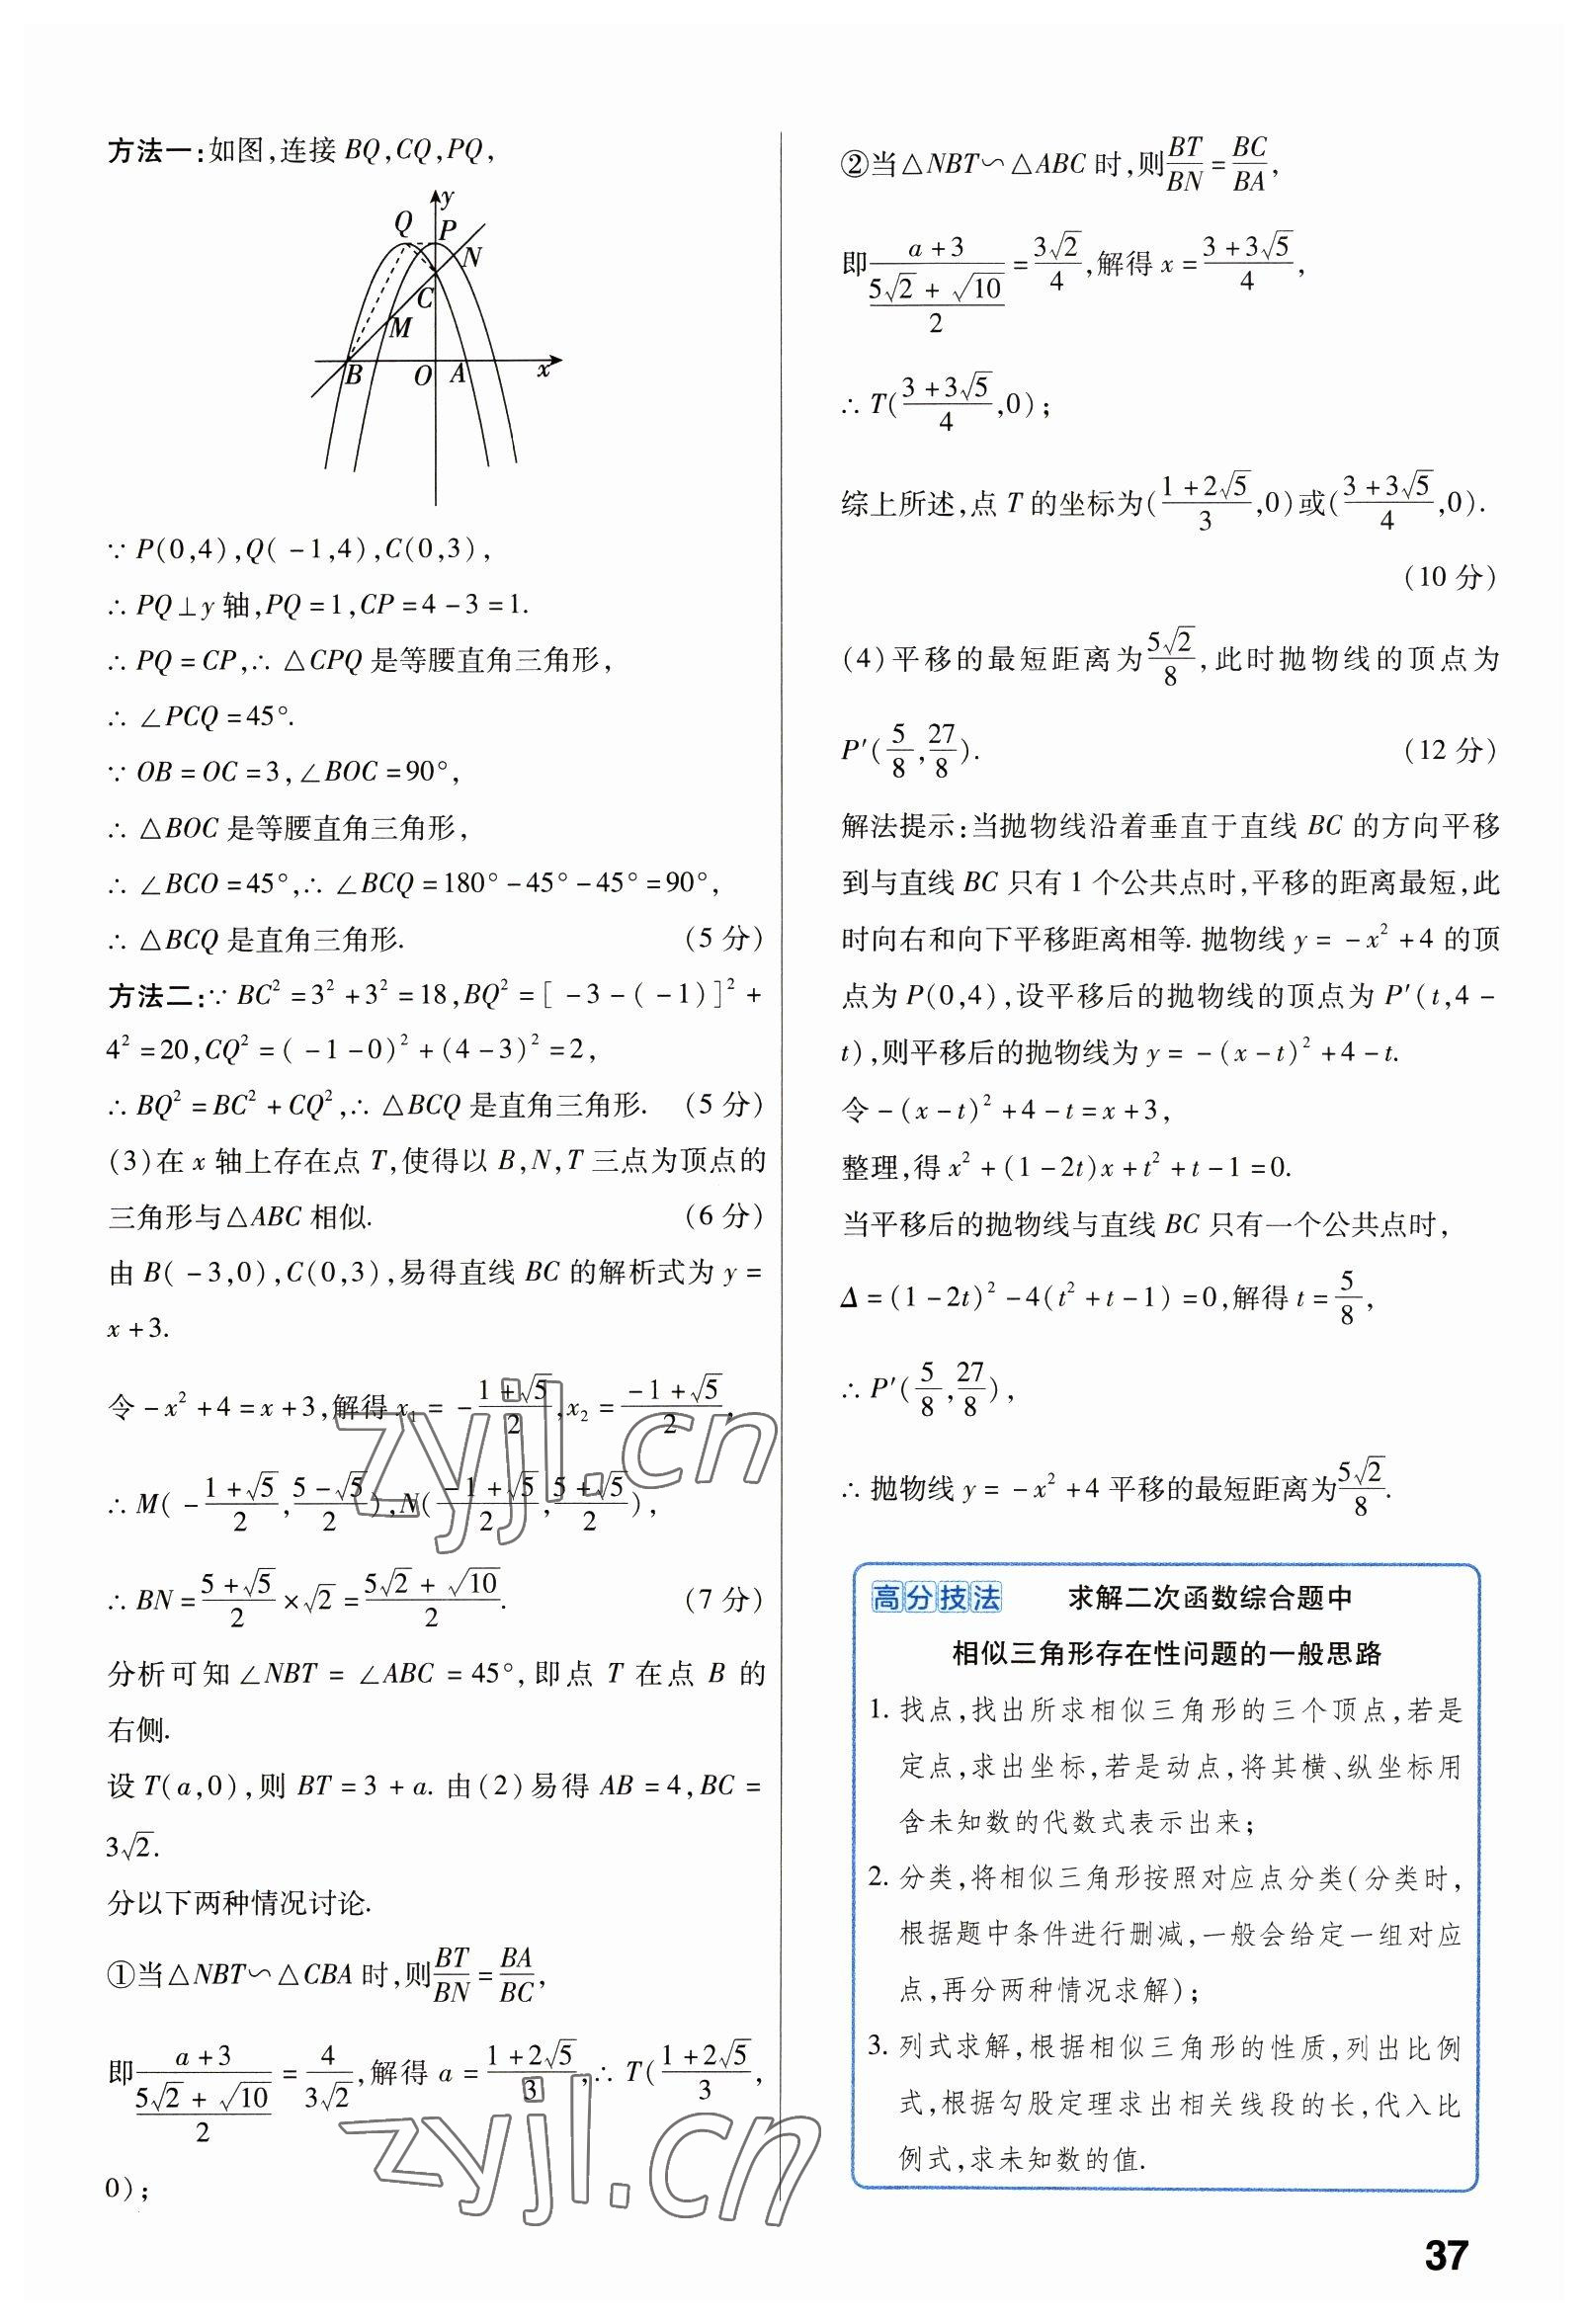 方法一:如图,连接 BQ,CQ,PQ,
y
Q P
N
C
M
B O A x
∵ P(0,4),Q(-1,4),C(0,3),
∴ PQ⊥y 轴,PQ=1,CP=4-3=1.
∴ PQ=CP,∴ △CPQ 是等腰直角三角形,
∴ ∠PCQ=45°.
∵ OB=OC=3,∠BOC=90°,
∴ △BOC 是等腰直角三角形,
∴ ∠BCO=45°,∴ ∠BCQ=180°-45°-45°=90°,
∴ △BCQ 是直角三角形. (5 分)
方法二:∵ BC²=3²+3²=18,BQ²=[-3-(-1)]²+
4²=20,CQ²=(-1-0)²+(4-3)²=2,
∴ BQ²=BC²+CQ²,∴ △BCQ 是直角三角形. (5 分)
(3)在 x 轴上存在点 T,使得以 B,N,T 三点为顶点的
三角形与△ABC 相似. (6 分)
由 B(-3,0),C(0,3),易得直线 BC 的解析式为 y=
x+3.
令-x²+4=x+3,解得 x₁=-(1+√5)/2,x₂=(-1+√5)/2,
∴ M(-(1+√5)/2,(5-√5)/2),N((-1+√5)/2,(5+√5)/2),
∴ BN=(5+√5)/2×√2=(5√2+√10)/2. (7 分)
分析可知∠NBT=∠ABC=45°,即点 T 在点 B 的
右侧.
设 T(a,0),则 BT=3+a. 由(2)易得 AB=4,BC=
3√2.
分以下两种情况讨论.
①当△NBT∽△CBA 时,则BT/BN=BA/BC,
即(a+3)/((5√2+√10)/2)=4/(3√2),解得 a=(1+2√5)/3,∴ T((1+2√5)/3,
0);
②当△NBT∽△ABC 时,则BT/BN=BC/BA,
即(a+3)/((5√2+√10)/2)=3√2/4,解得 x=(3+3√5)/4,
∴ T((3+3√5)/4,0);
综上所述,点 T 的坐标为((1+2√5)/3,0)或((3+3√5)/4,0).
(10 分)
(4)平移的最短距离为5√2/8,此时抛物线的顶点为
P′(5/8,27/8). (12 分)
解法提示:当抛物线沿着垂直于直线 BC 的方向平移
到与直线 BC 只有 1 个公共点时,平移的距离最短,此
时向右和向下平移距离相等. 抛物线 y=-x²+4 的顶
点为 P(0,4),设平移后的抛物线的顶点为 P′(t,4-
t),则平移后的抛物线为 y=-(x-t)²+4-t.
令-(x-t)²+4-t=x+3,
整理,得 x²+(1-2t)x+t²+t-1=0.
当平移后的抛物线与直线 BC 只有一个公共点时,
Δ=(1-2t)²-4(t²+t-1)=0,解得 t=5/8,
∴ P′(5/8,27/8),
∴ 抛物线 y=-x²+4 平移的最短距离为5√2/8.
高分技法 求解二次函数综合题中
相似三角形存在性问题的一般思路
1. 找点,找出所求相似三角形的三个顶点,若是
定点,求出坐标,若是动点,将其横、纵坐标用
含未知数的代数式表示出来;
2. 分类,将相似三角形按照对应点分类(分类时,
根据题中条件进行删减,一般会给定一组对应
点,再分两种情况求解);
3. 列式求解,根据相似三角形的性质,列出比例
式,根据勾股定理求出相关线段的长,代入比
例式,求未知数的值.
zyjl.cn
zyjl.cn
37